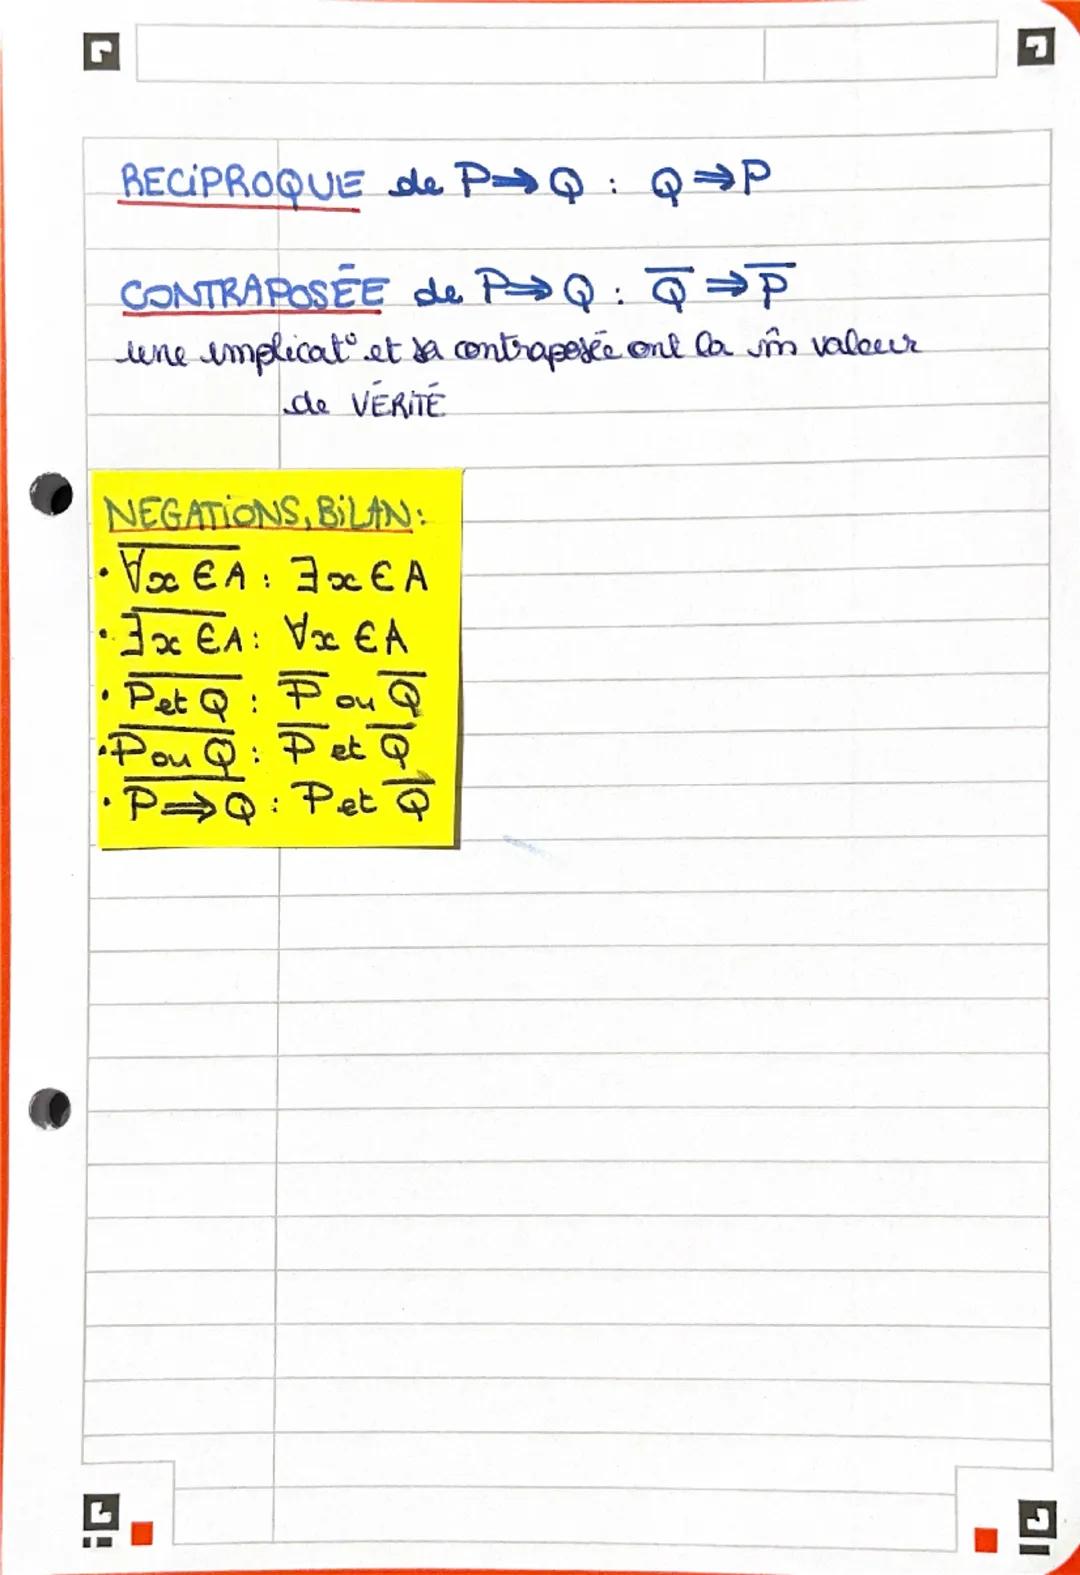 RECIPROQUE de P⇒Q : Q⇒P
CONTRAPOSÉE de P⇒Q : Q̅ ⇒ P̅
une implicat° et sa contraposée ont la m̂ valeur
de VÉRITÉ
NEGATIONS, BILAN:
• \overline{∀x ∈ A} : ∃x ∈ A
• \overline{∃x ∈ A} : ∀x ∈ A
• \overline{P et Q} : P̅ ou Q̅
• \overline{P ou Q} : P̅ et Q̅
• \overline{P ⇒ Q} : P et Q̅